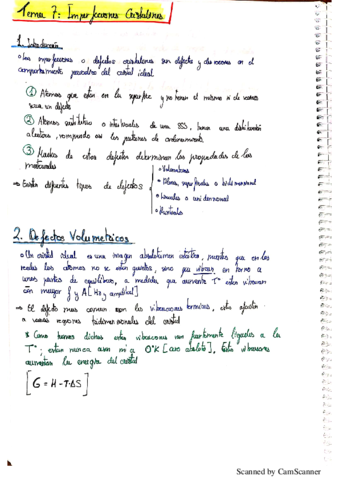 Tema 7: Imperfecciones Cristalinas
1. Introducción
• Las imperfecciones o defectos cristalinos son defectos y discusiones en el
comportamiento periodico del cristal ideal
① Atomos que estan en la superficie y no tienen el mismo nº de vecinos
sería un defecto
② Atomos sustitutivo o intersticiales de una SSS, tienen una distribución
aleatoria, rompiendo así los patrones de ordenamiento.
③ Muchos de estos defectos determinan las propiedades de los
materiales
• Volumétricos
⇒ Existen diferentes tipos de defectos
• Planos, superficiales o bidimensional
• Lineales o unidimensional
• Puntuales
2. Defectos Volumetricos
• Un cristal ideal es una imagen absolutamente estática, mientras que en los
reales los átomos no se estan quietos, sino que vibran en torno a
unos puntos de equilibrio, a medida que aumenta Tª estos vibraran
con mayor f y A [Hz y amplitud]
⇒ El defecto mas comun son las vibraciones termicas, esto afectan
a varias regiones tridimensionales del cristal
* Como hemos dicho estas vibraciones van fuertemente ligadas a la
Tª; estan nunca sera a 0ºK [cero absoluto]. Esta vibraciones
aumentan la energia del cristal
[G = H - T·ΔS]
Scanned by CamScanner